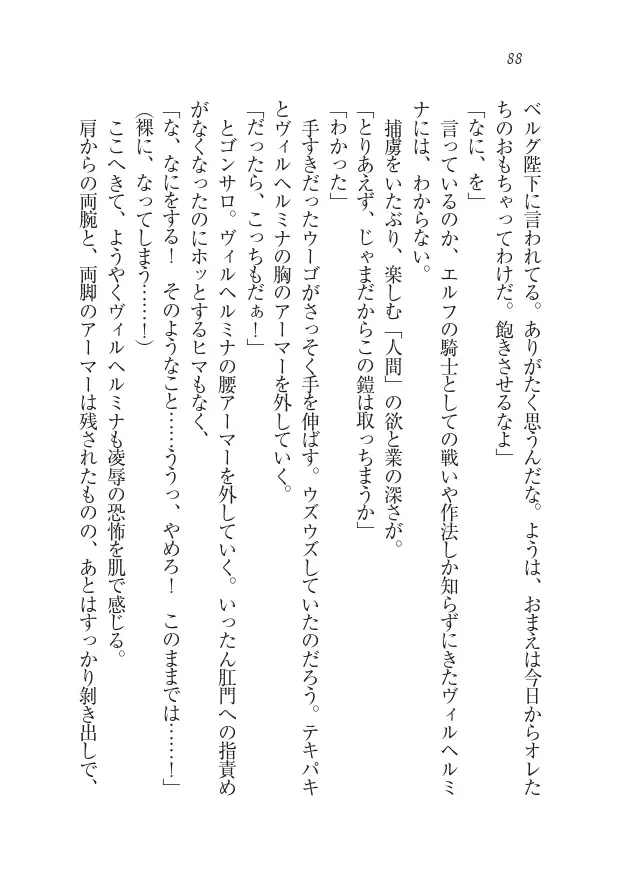 88
ベルグ陛下に言われてる。ありがたく思うんだな。ようは、おまえは今日からオレた
ちのおもちゃってわけだ。飽きさせるなよ」
「なに、を」
　言っているのか、エルフの騎士としての戦いや作法しか知らずにきたヴィルヘルミ
ナには、わからない。
　捕虜をいたぶり、楽しむ「人間」の欲と業の深さが。
「とりあえず、じゃまだからこの鎧は取っちまうか」
「わかった」
　手すきだったウーゴがさっそく手を伸ばす。ウズウズしていたのだろう。テキパキ
とヴィルヘルミナの胸のアーマーを外していく。
「だったら、こっちもだぁ！」
　とゴンサロ。ヴィルヘルミナの腰アーマーを外していく。いったん肛門への指責め
がなくなったのにホッとするヒマもなく、
「な、なにをする！　そのようなこと……ううっ、やめろ！　このままでは……！」
（裸に、なってしまう……！）
　ここへきて、ようやくヴィルヘルミナも凌辱の恐怖を肌で感じる。
　肩からの両腕と、両脚のアーマーは残されたものの、あとはすっかり剥き出しで、